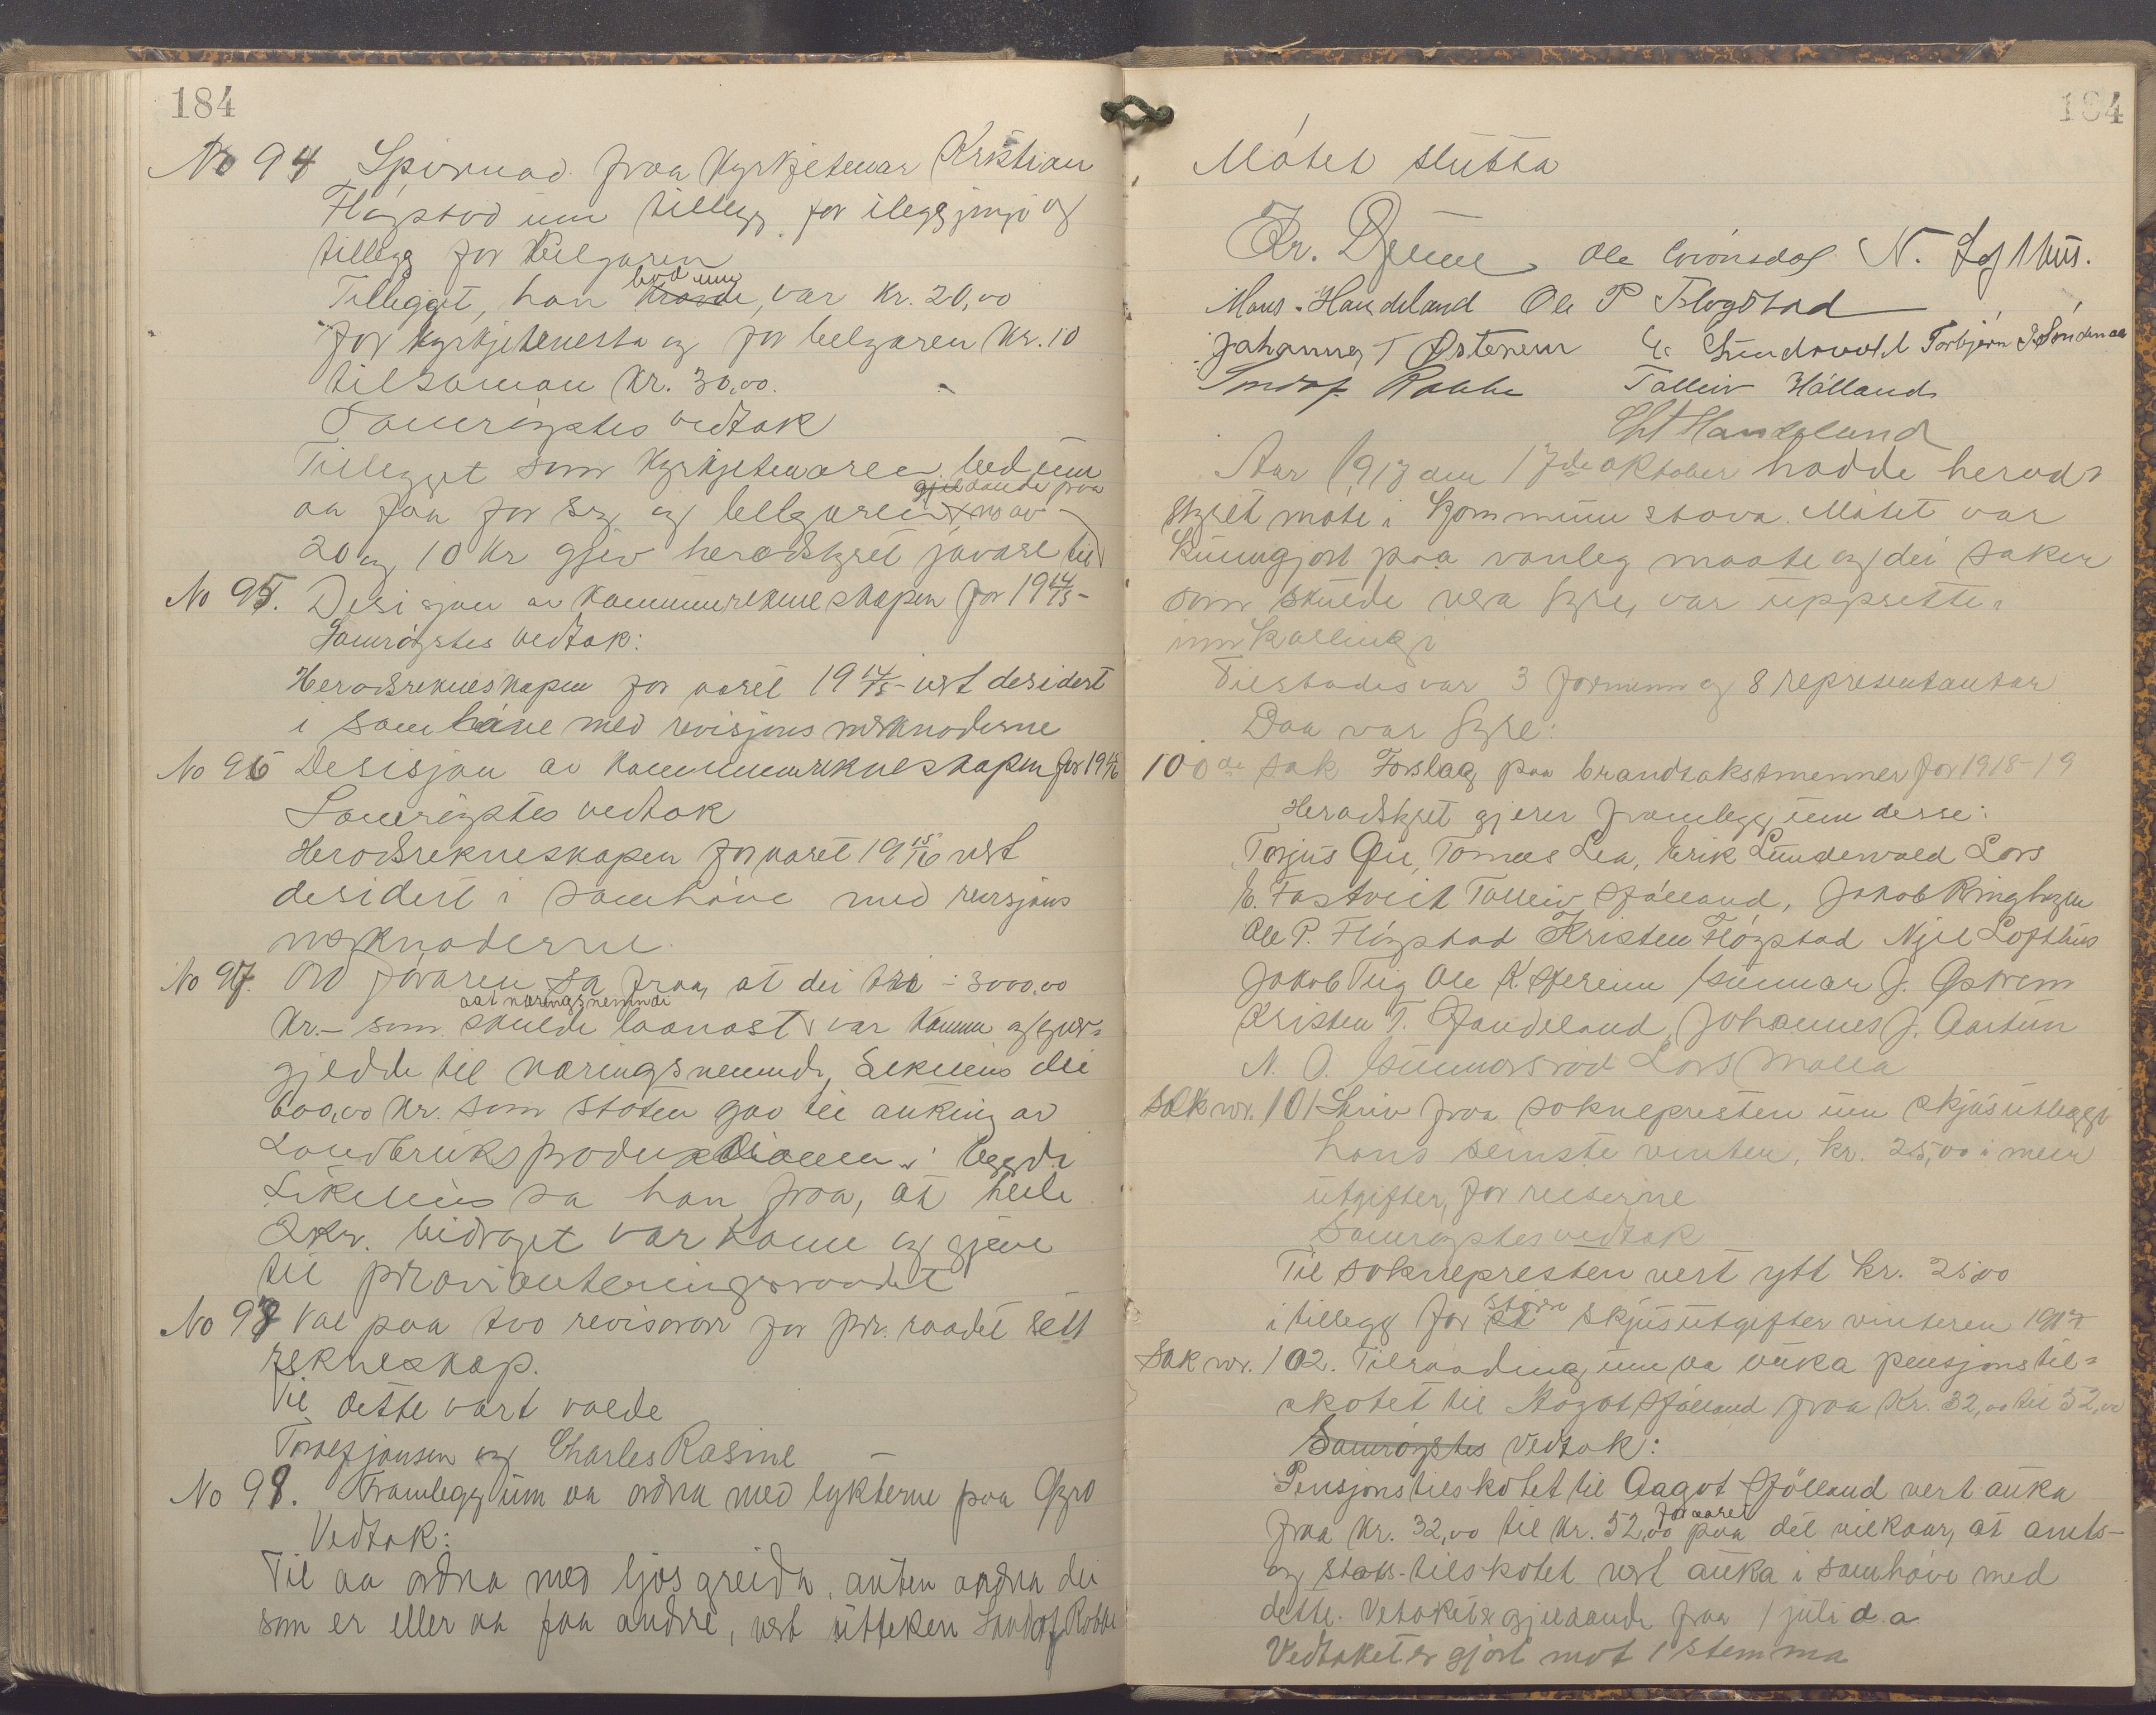 184
No 94 Spurnad fraa Kyrkjetenar Kristian
Fløgstad um tillegg for ileggjingi og
tillegg for belgaren
Tillegget, han bad um kravde, var kr. 20,00
for kyrkjetenesta og for belgaren kr. 10
tilsaman kr. 30,00.
Samrøystes vedtak
Tillegget som kyrkjetenaren bed um
aa faa for seg og belgaren gjeldande fraa
20 og 10 kr gjev heradstyret javare til
No 95. Desisjon av kommunerekneskapen for 1914/15
Samrøystes vedtak:
Heradsrekneskapen for aaret 1914/15 vert desidert
i samhøve med revisjons merknaderne
No 96 Desisjon av kommunerekneskapen for 1915/16
Samrøystes vedtak
Heradsrekneskapen for aaret 1915/16 vert
desidert i samhøve med revisjons
merknaderne.
No 97. Ordføraren sa fraa, at dei tri - 3000,00
kr. - som skulde laanast aat næringsnemndi var komne og
gjedde til næringsnemndi, Likeins dei
600,00 kr. som staten gav til auking av
Landbruksproduktionen i bygdi
Likeleis sa han fraa, at heile
2kr. bidraget var kome og gjeve
til provianteringsraadet
No 98 Val paa tvo revisorar for pr. raadet sitt
rekneskap.
Til dette vart valde
Torleif jansen og Charles Rasine
No 99. Framlegg um aa ordna med lykterne paa Øyro
Vedtak:
Til aa ordna med ljos greida, anten ordna dei
som er eller aa faa andre, vert utteken Sandof Rabbe
184
Møtet slutta
Kr. Djeme Ole Grønsdal N. Lofthus.
Mons Handeland Ole P Fløgstad
Johannes T Østrem G. Lundevold Torbjørn J. Søndenaa
Sandof Rabbe Talleiv Hålland
Chr Handeland
Aar 1917 den 17de oktober hadde herads
styret møte i kommunestova. Møtet var
kunngjort paa vanleg maate og dei saker
som skulde vera fyre, var uppsette i
innkallingi
Tilstades var 3 formenn og 8 representantar
Daa var fyre:
100de sak Forslag paa brandtakstmenner for 1918-19
Heradstyret gjerer framlegg um desse:
Torjus Øie, Tomas Lea, Erik Lundevold Lars
E. Fastveit Talleiv Hålland, Jakob Ringbøen
Ole P. Fløgstad Kristen Fløgstad Njel Lofthus
Jakob Teig Ole K. Hereim Gunnar J. Østrem
Kristen T. Handeland, Johannes J. Aartun
N. O. Gunnarsrod Lars Malla
Sak nr. 101 Skriv fraa soknepresten um skjusutleggi
hans seinste vinter, kr. 25,00 i meir
utgifter, for reiserne
Samrøystes vedtak
Til soknepresten vert ytt kr. 25,00
i tillegg for større skjusutgifter vinteren 1917
Sak nr. 102. Tilraading um aa auka pensjonstil=
skotet til Aagot Hålland fraa kr. 32,00 til 52,00
Samrøystes Vedtak:
Pensjonstilskotet til Aagot Hölland vert auka
fraa kr. 32,00 til kr. 52,00 for aaret paa det vilkaar, at amts-
og stats-tilskotet vert auka i samhøve med
dette. Vetaket er gjeldande fraa 1 juli d. a
Vedtaket er gjort mot 1 stemma